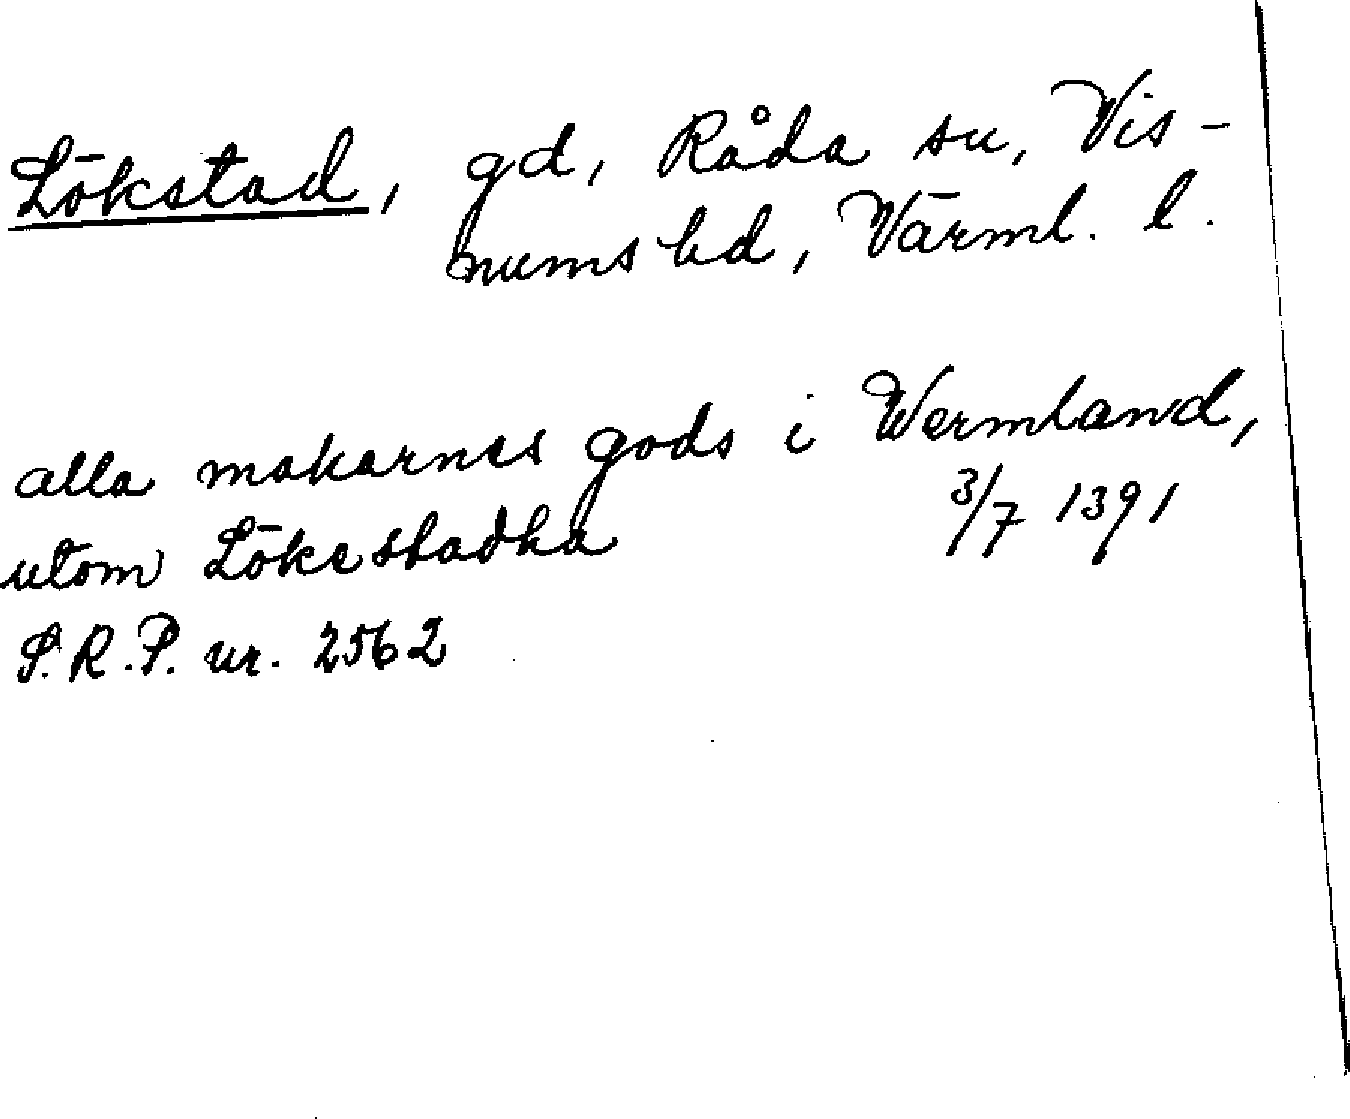 Lökstad, gd, Råda sn, Vis-
nums hd, Värml. l.
alla makarnes gods i Wermland,
utom Lökestadha 3/7 1391
S.R.P. nr. 2562